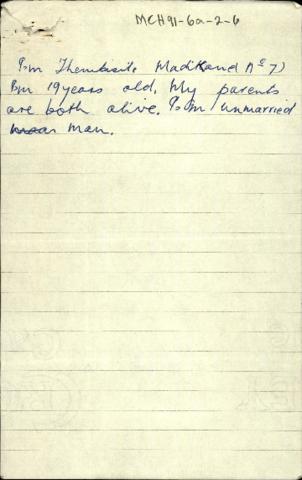 MCH91-6a-2-6
I'm Thembesile Madikand Nº 7)
I'm 19 years old. My parents
are both alive. I'm unmarried
man.